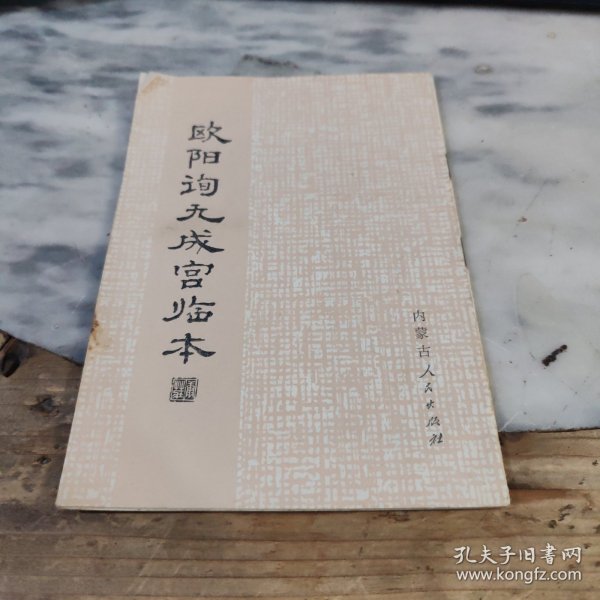 欧阳询九成宫临本
内蒙古人民出版社
孔夫子旧书网
www.kongfz.com